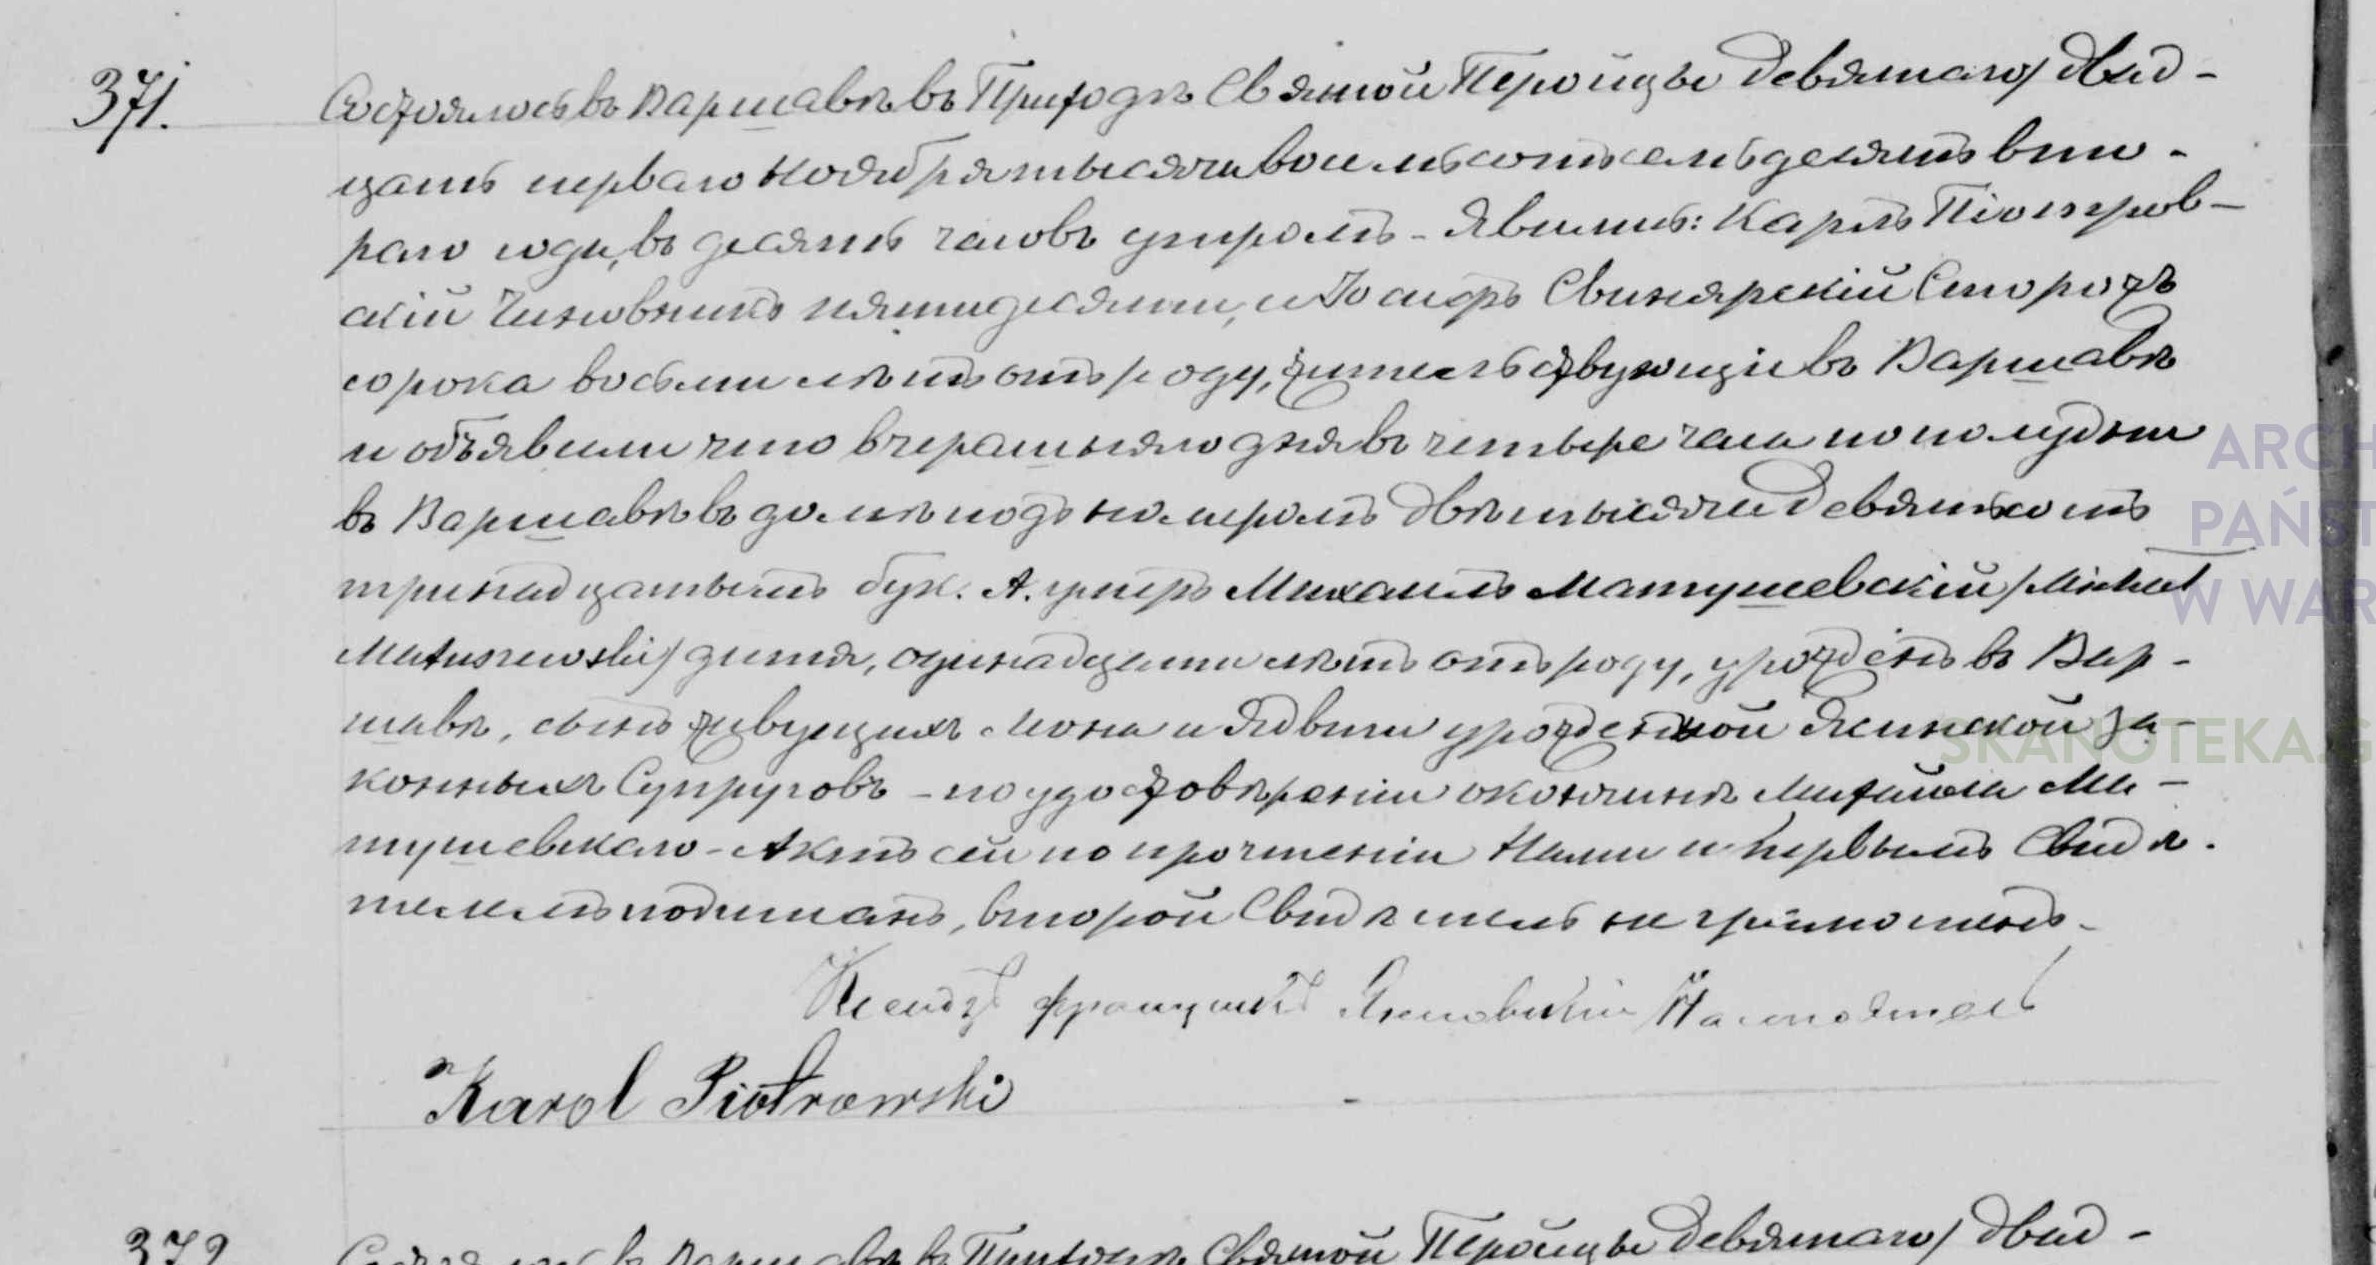 371.
Состоялось въ Варшавѣ въ Приходѣ Святой Тройцы Девятаго/Двад-
цать перваго Ноября тысяча восемьсотъ семьдесятъ вто-
раго года, въ десять часовъ утромъ - Явились: Карлъ Піотров-
скій Чиновникъ пятидесяти, и Іосифъ Свинярскій Сторожъ
сорока восьми лѣтъ отъ роду, жительствующіе въ Варшавѣ
и объявили что вчерашняго дня въ четыре часа по полудни
въ Варшавѣ въ домѣ подъ номеромъ двѣ тысячи девятьсотъ
тринадцатымъ бук. А. умеръ Михаилъ Матушевскій/Michał
Matuszewski/ дитя, одинадцати лѣтъ отъ роду, урожденъ въ Вар-
шавѣ, сынъ живущихъ Леона и Ядвиги урожденной Ясинской за-
конныхъ Супруговъ - по удостовѣреніи о кончинѣ Михаила Ма-
тушевскаго - Актъ сей по прочтеніи Нами и первымъ Свидѣ-
телемъ подписанъ, второй Свидѣтель неграмотенъ.
Ксендзъ Францишекъ Настоятель
Karol Piotrowski
372
Состоялось въ Варшавѣ въ Приходѣ Святой Тройцы Девятаго/Двад-
ARCH
PAŃST
W WAR
SKANOTEKA.G